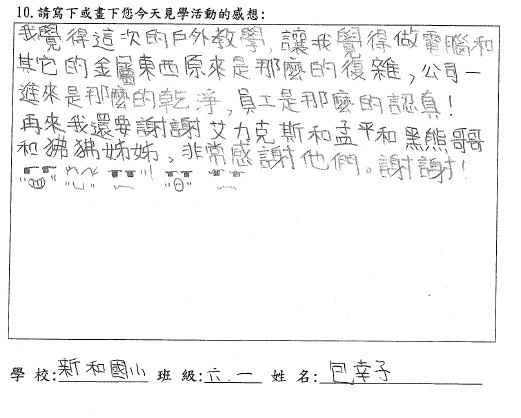 10.請寫下或畫下您今天見學活動的感想:
我覺得這次的戶外教學，讓我覺得做電腦和
其它的金屬東西原來是那麼的復雜，公司一
進來是那麼的乾淨，員工是那麼的認真！
再來我還要謝謝艾力克斯和孟平和黑熊哥哥
和狒狒姊姊，非常感謝他們。謝謝！
學 校:新和國小 班 級:六.一 姓 名:包幸子